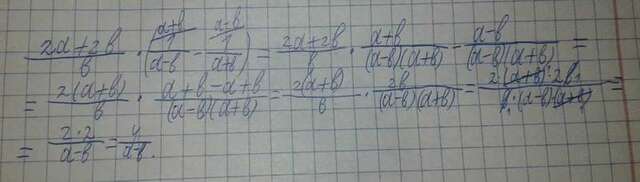 (2a+2b)/b · ((a+b)/1/(a-b) - (a-b)/1/(a+b)) = (2a+2b)/b · (a+b)/((a-b)(a+b)) - (a-b)/((a-b)(a+b)) =
= 2(a+b)/b · (a+b-a+b)/((a-b)(a+b)) = 2(a+b)/b · 2b/((a-b)(a+b)) = 2·(a+b)·2b/(b·(a-b)(a+b)) =
= 2·2/(a-b) = 4/(a-b).